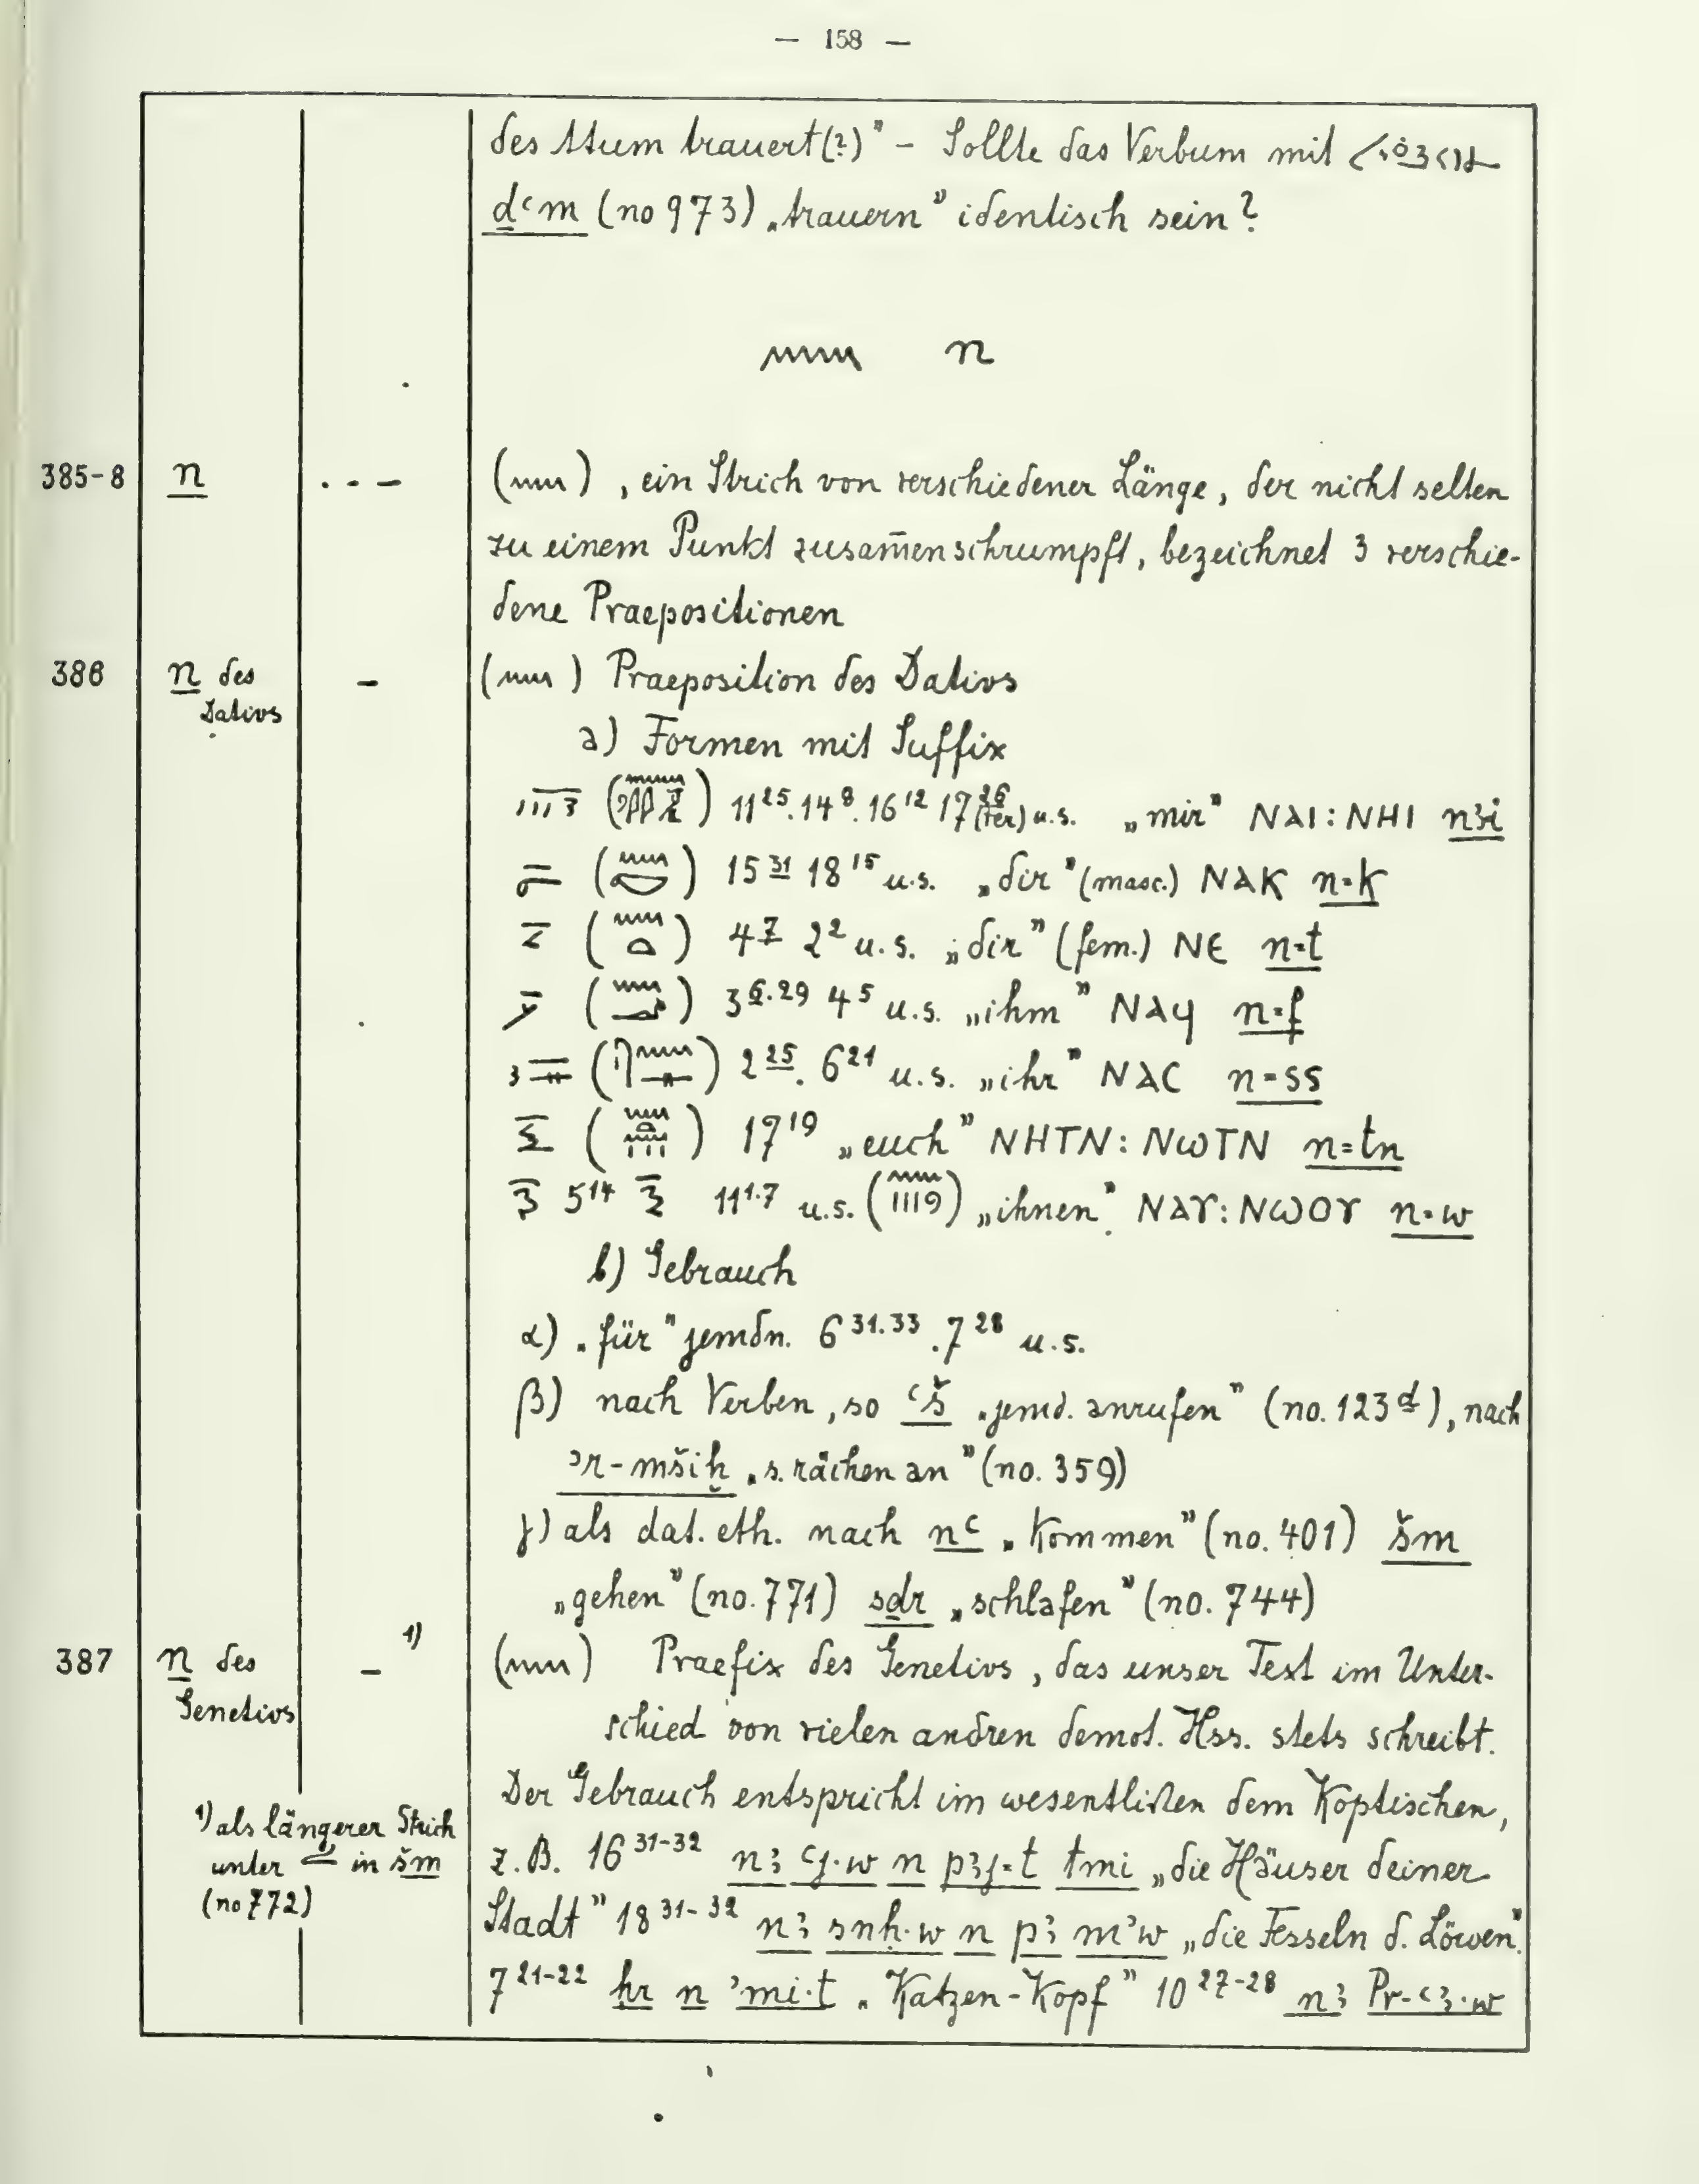 — 158 —
des Atum trauert(?)" – Sollte das Verbum mit
ḏꜥm (no 973) „trauern" identisch sein?
n
385-8 n . - – ( ) , ein Strich von verschiedener Länge, der nicht selten
zu einem Punkt zusam̅enschrumpft, bezeichnet 3 verschie-
dene Praepositionen
386 n des Dativs – ( ) Praeposition des Dativs
a) Formen mit Suffix
11²⁵.14⁸.16¹² 17²⁶(ter) u.s. „mir" ⲚⲀⲒ : ⲚⲎⲒ nꜣi
15³¹ 18¹⁵ u.s. „dir" (masc.) ⲚⲀⲔ n=k
4⁷ 2² u.s. „dir" (fem.) ⲚⲈ n=t
3⁶·²⁹ 4⁵ u.s. „ihm" ⲚⲀϤ n=f
2²⁵. 6²¹ u.s. „ihr" ⲚⲀⲤ n=ss
17¹⁹ „euch" ⲚⲎⲦⲚ : ⲚⲰⲦⲚ n=tn
5¹⁴ 11¹·⁷ u.s. ( ) „ihnen" ⲚⲀⲨ : ⲚⲰⲞⲨ n=w
b) Gebrauch
α) „für" jemdn. 6³¹·³³.7²⁸ u.s.
β) nach Verben, so ꜥš „jemd. anrufen" (no. 123ᵈ), nach
ʾr-mšiḥ „s. rächen an" (no. 359)
γ) als dat. eth. nach nꜥ „kommen" (no. 401) šm
„gehen" (no. 771) sdr „schlafen" (no. 744)
387 n des Genetivs – ¹⁾ ( ) Praefix des Genetivs, das unser Text im Unter-
schied von vielen andren demot. Hss. stets schreibt.
Der Gebrauch entspricht im wesentlichen dem Koptischen,
z.B. 16³¹⁻³² nꜣ ꜥj·w n pꜣj=t tmi „die Häuser deiner
Stadt" 18³¹⁻³² nꜣ snḥ·w n pꜣ mʾw „die Fesseln d. Löwen".
7²¹⁻²² ḥr n ʾmi·t „Katzen-Kopf" 10²⁷⁻²⁸ nꜣ Pr-ꜥꜣ·w
¹⁾ als längerer Strich
unter in šm
(no 772)